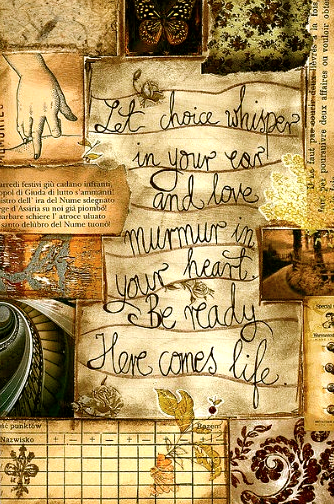 Let choice whisper
in your ear
and love
murmur in
your heart.
Be ready
Here comes life.
arredi festivi giù cadano infranti,
opol di Giuda di lutto s'ammanti
istro dell' ira del Nume sdegnato
ge d'Assiria su noi già piombò!
arbare schiere l' atroce ululato
santo delúbro del Nume tuonò!
à la fois,
lièvres
Il ne faut pas courir deux
poursuivre deux affaires ou vouloir obte
ość punktów
Nazwisko
Razem
Special